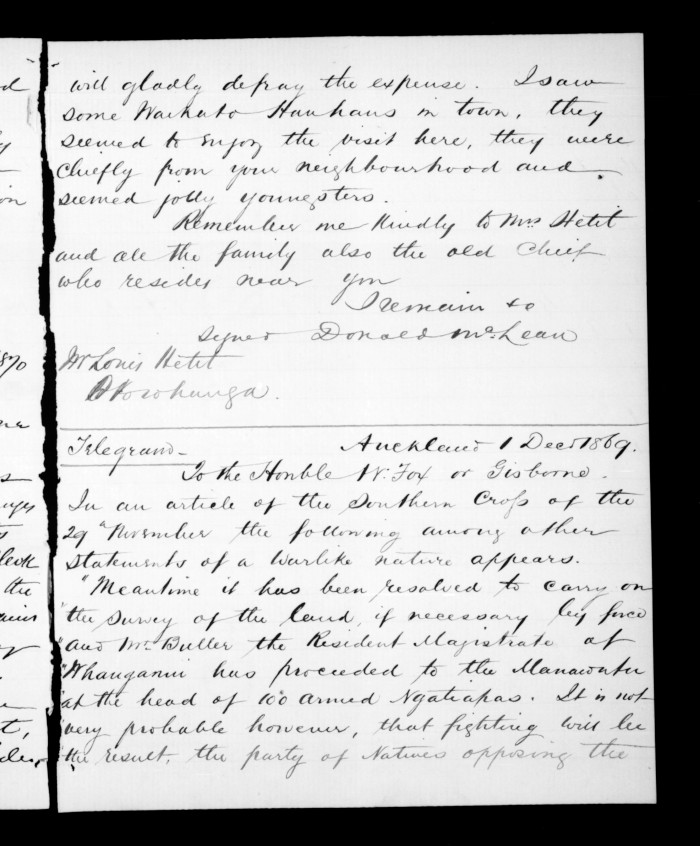 will gladly defray the expense. I saw
some Waikato Hauhaus in town, they
seemed to enjoy the visit here, they were
chiefly from your neighbourhood and
seemed jolly youngsters.
Remember me kindly to Mrs Hetit
and all the family also the old Chief
who resides near you
I remain &c
signed Donald McLean
Mr Louis Hetit
Telegram
Auckland 1 Decr 1869.
To the Honble W. Fox or Gisborne.
In an article of the Southern Cross of the
29th November the following among other
statements of a warlike nature appears.
"Meantime it has been resolved to carry on
"the survey of the land, if necessary by force
"and Mr Buller the Resident Magistrate of
"Whanganui has proceeded to the Manawatu
"at the head of 100 armed Ngatiapas. It is not
"very probable however, that fighting will be
"the result, the party of Natives opposing the
1870
the